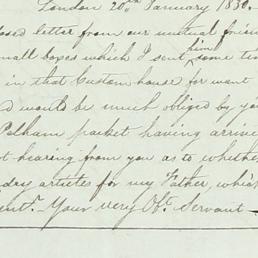 London 20th January 1830.
osed letter from our mutual frien
mall boxes which I sent him some ti
in that Custom house for want
d would be much obliged by yo
Pelham packet having arrive
t hearing from you as to whethe
day articles for my Father, whic
ent. Your very Obt. Servant